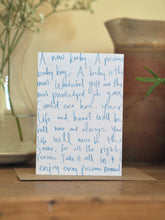 A new baby. A precious
baby boy. A baby is the
most wonderful gift and the
most privileged life you
could ever have. Your
life and heart will be
full now and always. Your
life will never be the
same, for all the right
reasons. Take it all in &
enjoy every precious moment